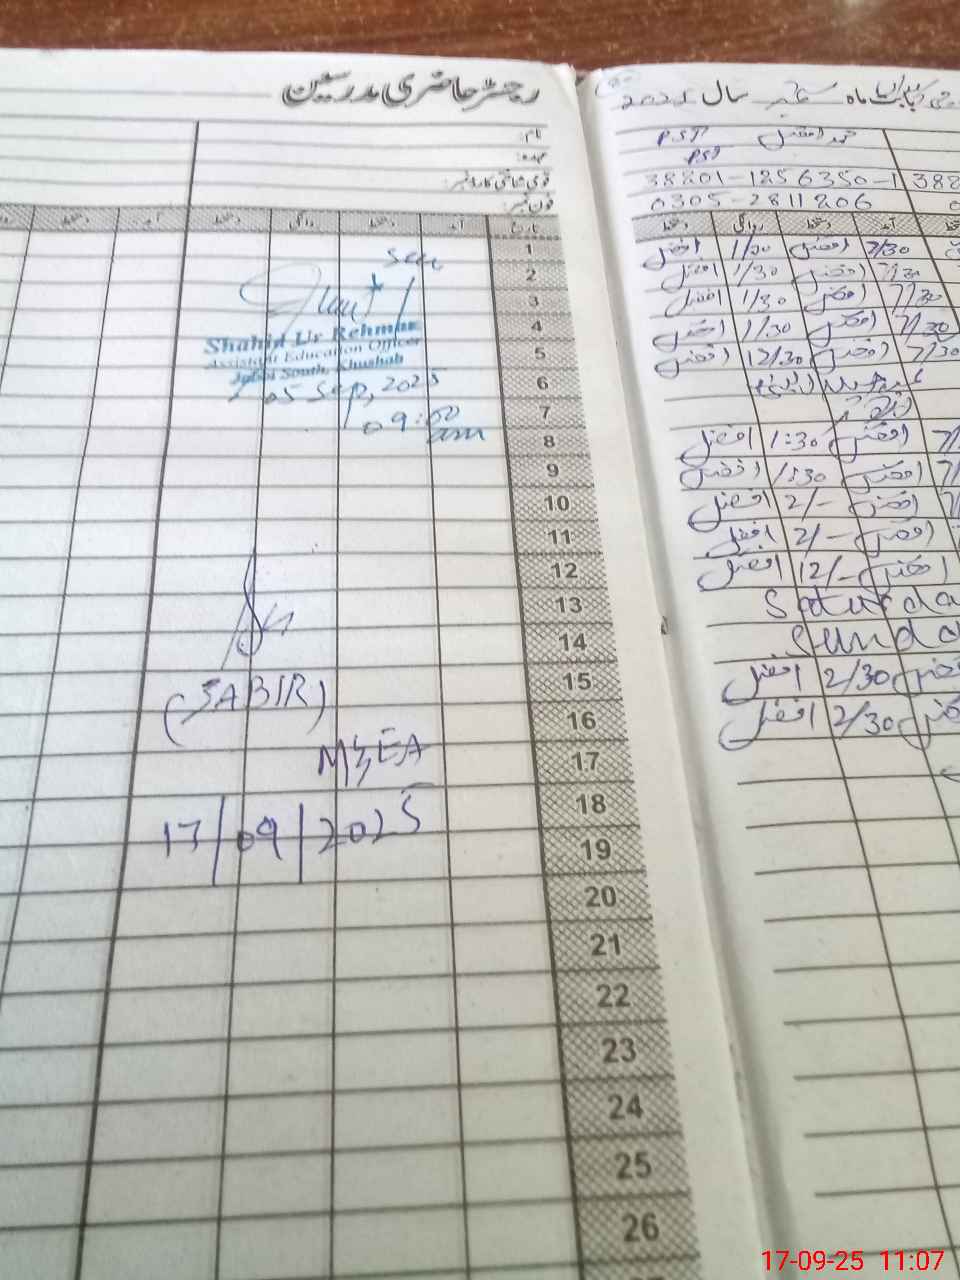 رجسٹر حاضری مدرسین
نام:
عہدہ:
قومی شناختی کارڈ نمبر:
فون نمبر:
تاریخ آمد دستخط روانگی دستخط آمد دستخط
1
2
3
4
5
6
7
8
9
10
11
12
13
14
15
16
17
18
19
20
21
22
23
24
25
26
Seen
Shahid Ur Rehman
Assistant Education Officer
South, Khushab
05 Sep, 2025
09:00
am
(SABIR)
MEA
17/09/2025
ماہ ستمبر سال 2025
محمد افضل PST
PST
38201-1256350-1 382
0305-2811206
آمد دستخط روانگی دستخط
7/30 افضل 1/30 افضل
7/30 افضل 1/30 افضل
7/30 افضل 1/30 افضل
7/30 افضل 1/30 افضل
7/30 افضل 12/30 افضل
عید میلاد النبی
اتوار
7/ افضل 1:30 افضل
7/ افضل 1:30 افضل
7/ افضل 2/- افضل
افضل 2/- افضل
افضل 12/- افضل
Saturda
Sunda
افضل 2/30 افضل
افضل 2/30 افضل
17-09-25 11:07